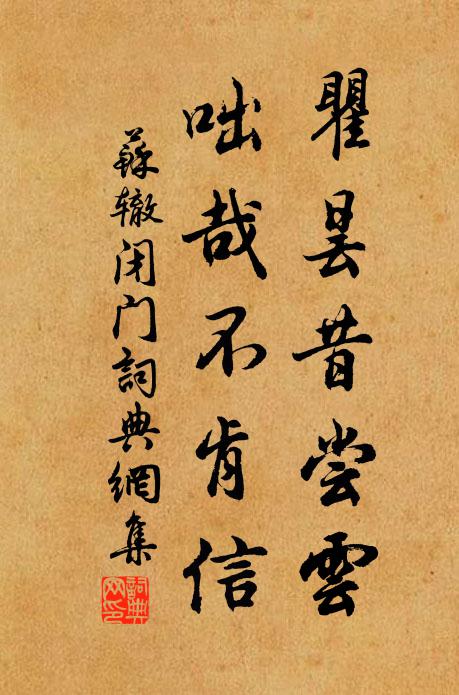 瞿昙昔尝雲
咄哉不肯信
蘇辙闭门詞典網集
詞典网印